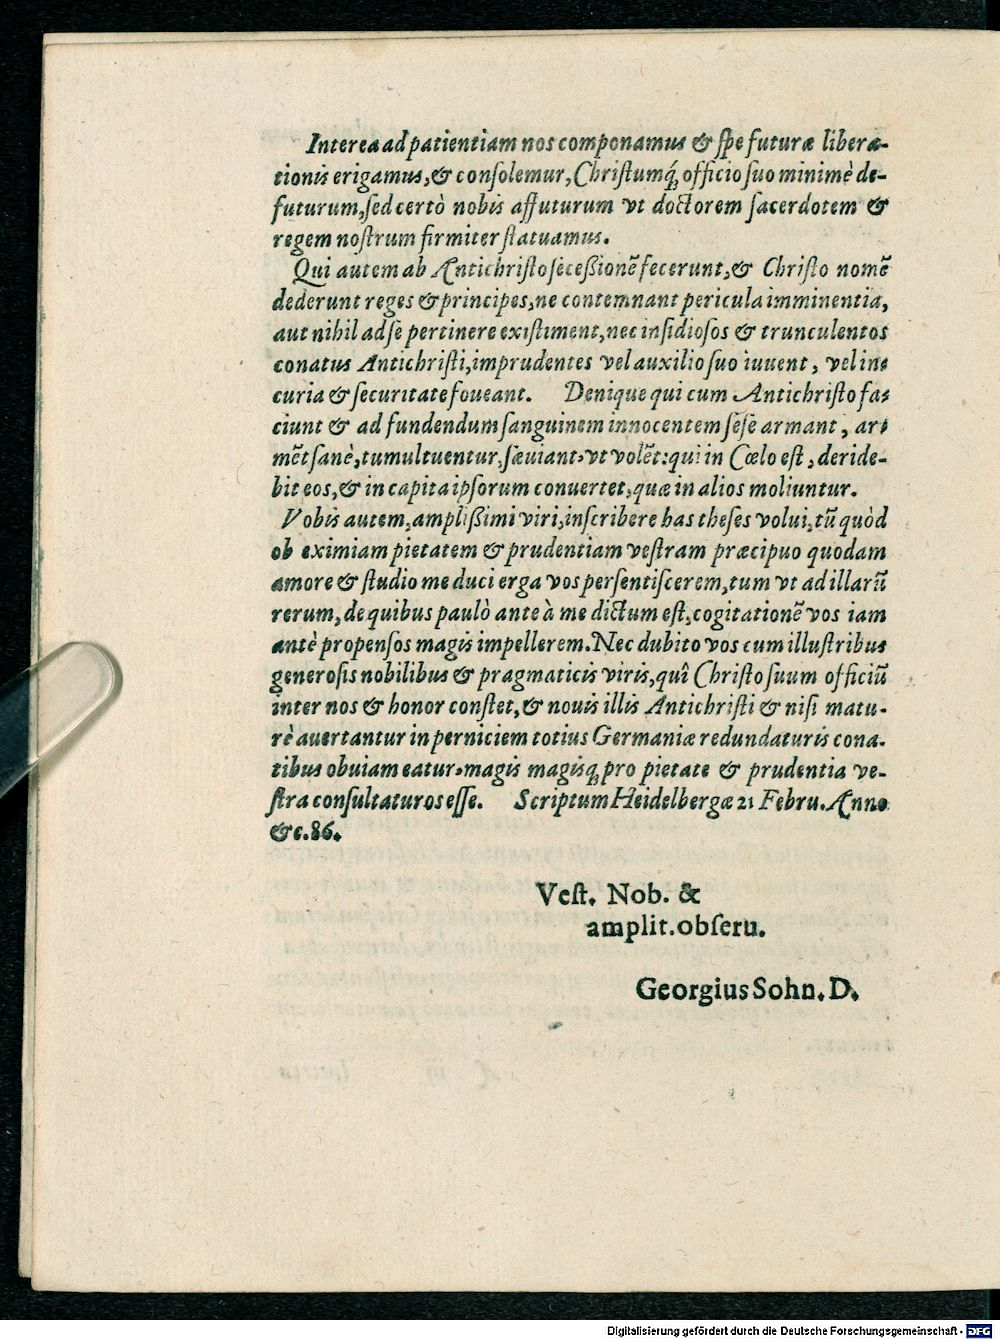 Interea ad patientiam nos componamus & ſpe futuræ libera-
tionis erigamus, & conſolemur, Chriſtumq́; officio ſuo minimè de-
futurum, ſed certò nobis affuturum vt doctorem ſacerdotem &
regem noſtrum firmiter ſtatuamus.
Qui autem ab Antichriſto ſeceßionẽ fecerunt, & Chriſto nomẽ
dederunt reges & principes, ne contemnant pericula imminentia,
aut nihil ad ſe pertinere exiſtiment, nec inſidioſos & trunculentos
conatus Antichriſti, imprudentes vel auxilio ſuo iuuent, vel in-
curia & ſecuritate foueant. Denique qui cum Antichriſto fa-
ciunt & ad fundendum ſanguinem innocentem ſeſe armant, ar-
mẽt ſanè, tumultuentur, ſæuiant, vt volẽt: qui in Cœlo eſt, deride-
bit eos, & in capita ipſorum conuertet, quæ in alios moliuntur.
Vobis autem, amplißimi viri, inſcribere has theſes volui, tũ quòd
ob eximiam pietatem & prudentiam veſtram præcipuo quodam
amore & ſtudio me duci erga vos perſentiſcerem, tum vt ad illarũ
rerum, de quibus paulò ante à me dictum eſt, cogitationẽ vos iam
antè propenſos magis impellerem. Nec dubito vos cum illuſtribus
generoſis nobilibus & pragmaticis viris, quî Chriſto ſuum officiũ
inter nos & honor conſtet, & nouis illis Antichriſti & niſi matu-
rè auertantur in perniciem totius Germaniæ redundaturis cona-
tibus obuiam eatur, magis magisq; pro pietate & prudentia ve-
ſtra conſultaturos eſſe. Scriptum Heidelbergæ 21 Febru. Anno
&c. 86.
Veſt. Nob. &
amplit. obſeru.
Georgius Sohn. D.
Digitalisierung gefördert durch die Deutsche Forschungsgemeinschaft - DFG